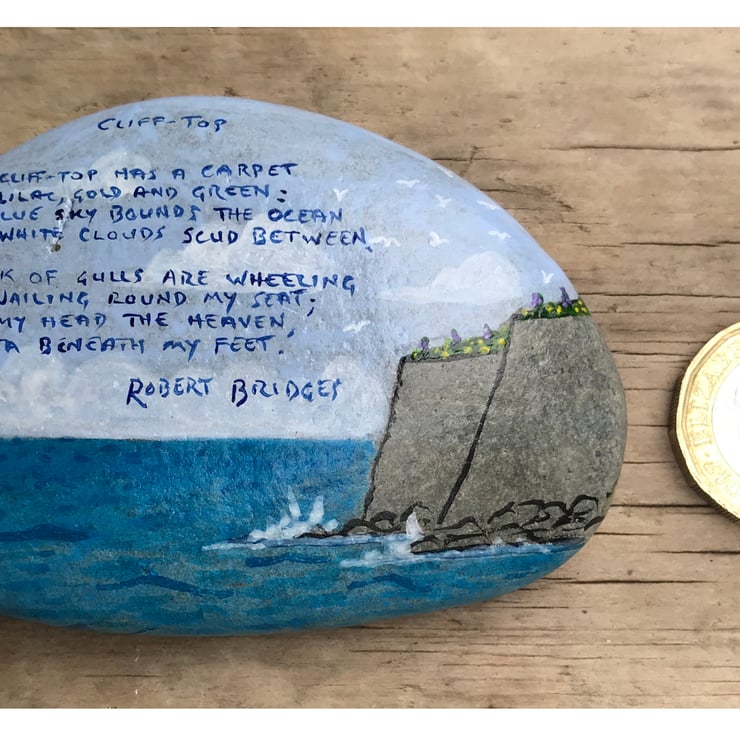 CLIFF-TOP
CLIFF-TOP HAS A CARPET
LILAC, GOLD AND GREEN:
LUE SKY BOUNDS THE OCEAN
WHITE CLOUDS SCUD BETWEEN.
K OF GULLS ARE WHEELING
WAILING ROUND MY SEAT;
MY HEAD THE HEAVEN,
A BENEATH MY FEET.
ROBERT BRIDGES